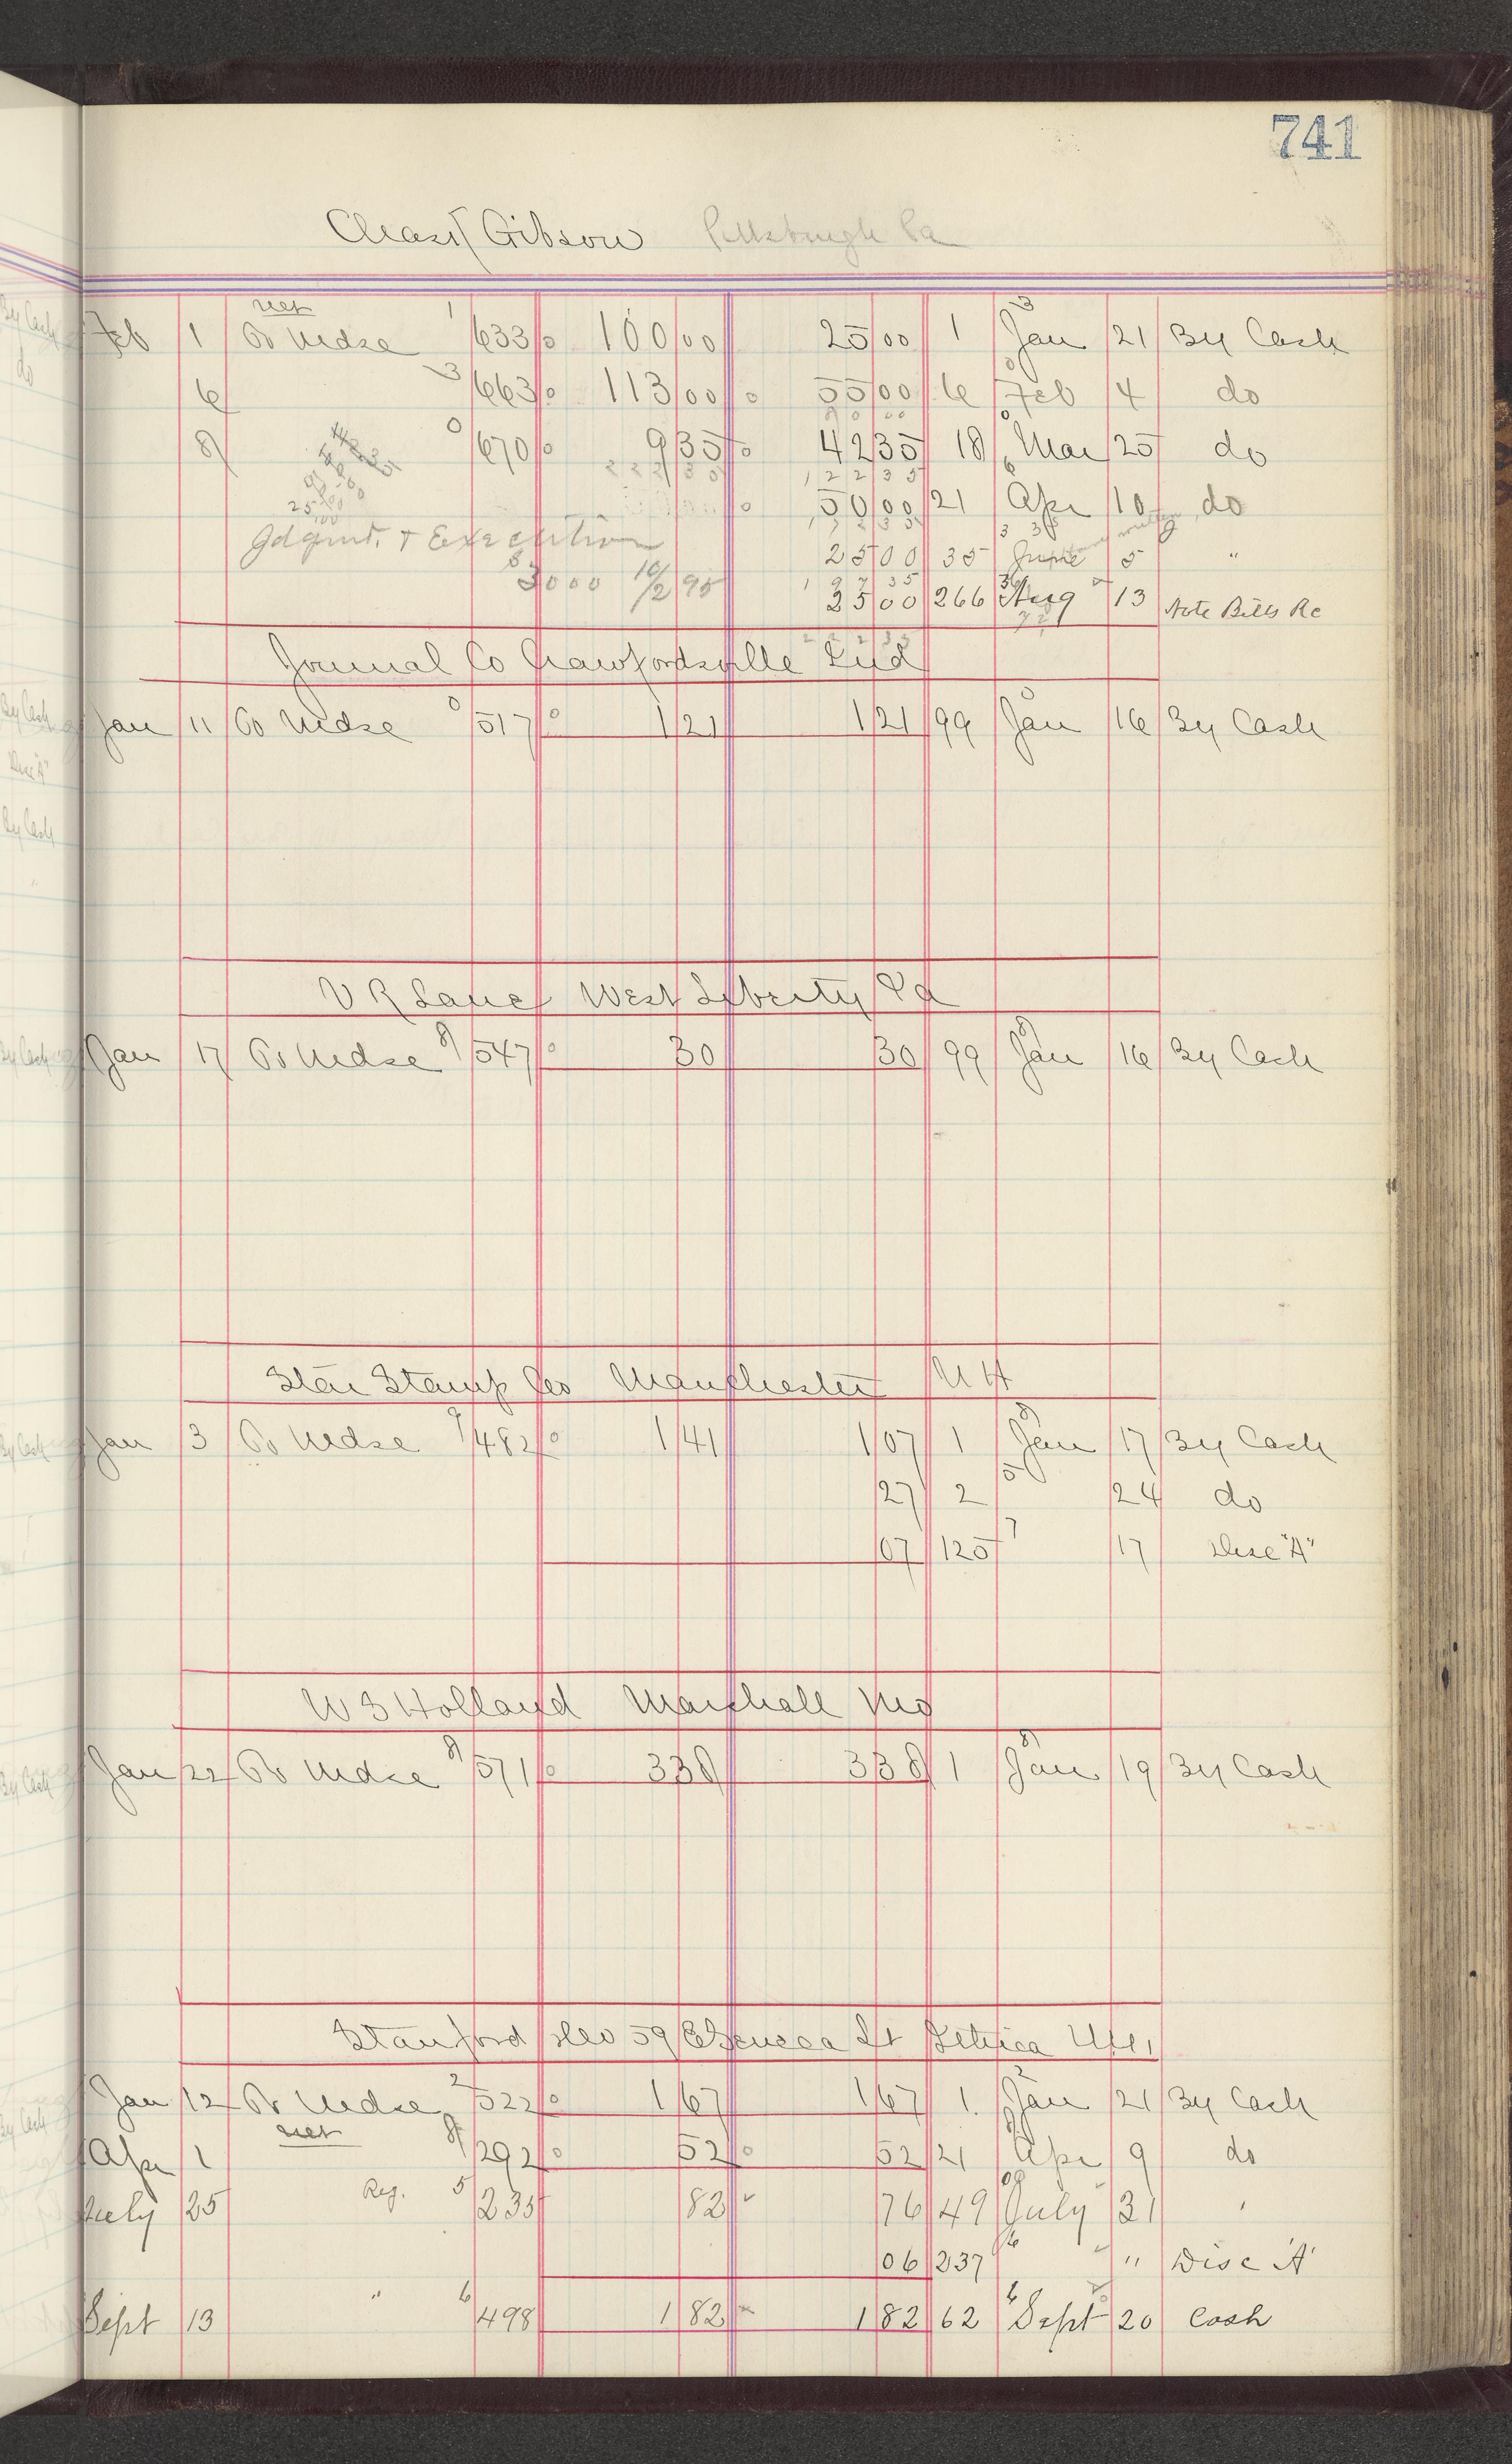 741
Chast Gibson Pittsburgh Pa
net
Feb 1 To Mdse 1 633 0 100 00 25 00 1 3 Jan 21 By Cash
6 3 663 0 113 00 0 55 00 6 0 Feb 4 do
8 0 670 0 9 35 0 42 35 18 0 Mar 25 do
2 2 2 3 5 1 2 2 3 5
0 50 00 21 6 Apr 10 do
Jdgmnt. + Execution 25 00 35 June 5 "
3000 10/2 95 1 9 7 3 5
25 00 266 Aug 13 Note Bills Rc
2 2 2 3 5
Journal Co Crawfordsville Ind
Jan 11 To Mdse 0 517 0 1 21 1 21 99 0 Jan 16 By Cash
V R Lane West Liberty Pa
Jan 17 To Mdse 8 547 0 30 30 99 8 Jan 16 By Cash
Star Stamp Co Manchester N H
Jan 3 To Mdse 9 482 0 1 41 1 07 1 8 Jan 17 By Cash
27 2 5 24 do
07 125 7 17 Disc "A"
W B Holland Marshall Mo
Jan 22 To Mdse 8 571 0 3 38 3 38 1 8 Jan 19 By Cash
Stanford 59 E Seneca St Ithica
Jan 12 To Mdse 2 522 0 1 67 1 67 1 2 Jan 21 By Cash
net
Apr 1 8 292 0 52 0 52 21 Apr 9 do
July 25 Reg. 5 235 82 76 49 July 31 '
06 237 6 " Disc 'A'
Sept 13 " 6 498 1 82 1 82 62 6 Sept 20 Cash
By Cash
do
By Cash
Disc "A"
By Cash
By Cash
By Cash
By Cash
By Cash